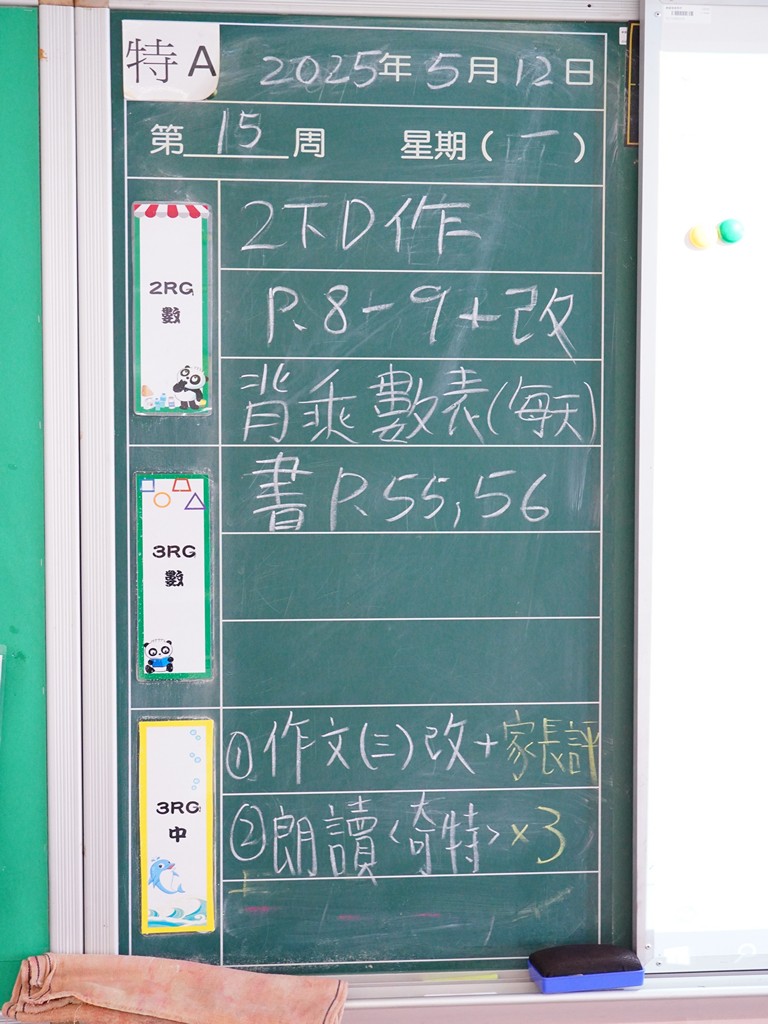 特A 2025年5月12日
第15周 星期(一)
2RG
數
2下D作
P.8-9+改
背乘數表(每天)
3RG
數
書P.55,56
3RG
中
①作文(三)改+家長評
②朗讀<奇特>×3